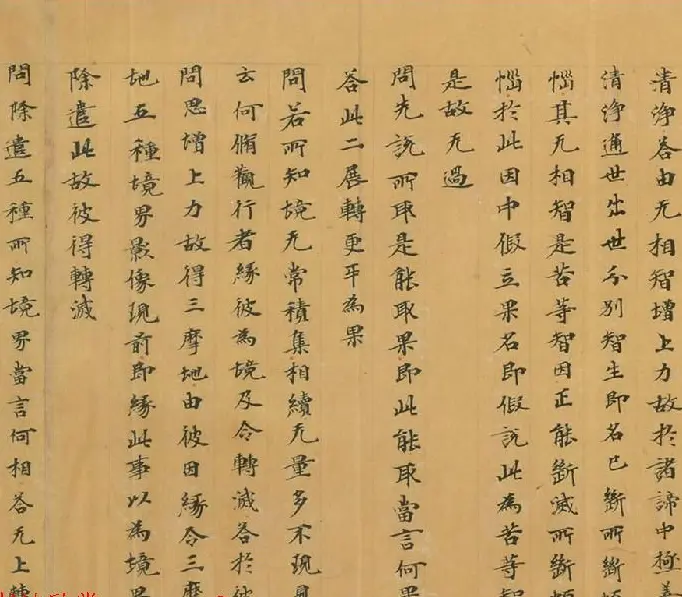 清淨答由无相智增上力故於諸諦中極善
清淨通世出世分別智生即名已斷所斷煩
惱其无相智是苦等智因正能斷滅所斷煩
惱於此因中假立果名即假說此為苦等智
是故无過
問先說所取是能取果即此能取當言何果
答此二展轉更互為果
問若所知境无常積集相續无量多不現見
云何脩觀行者緣彼為境及令轉滅答於彼
問思增上力故得三摩地由彼因緣令三摩
地五種境界影像現前即緣此事以為境界
除遣此故彼得轉滅
問除遣五種所知境界當言何相答无上轉